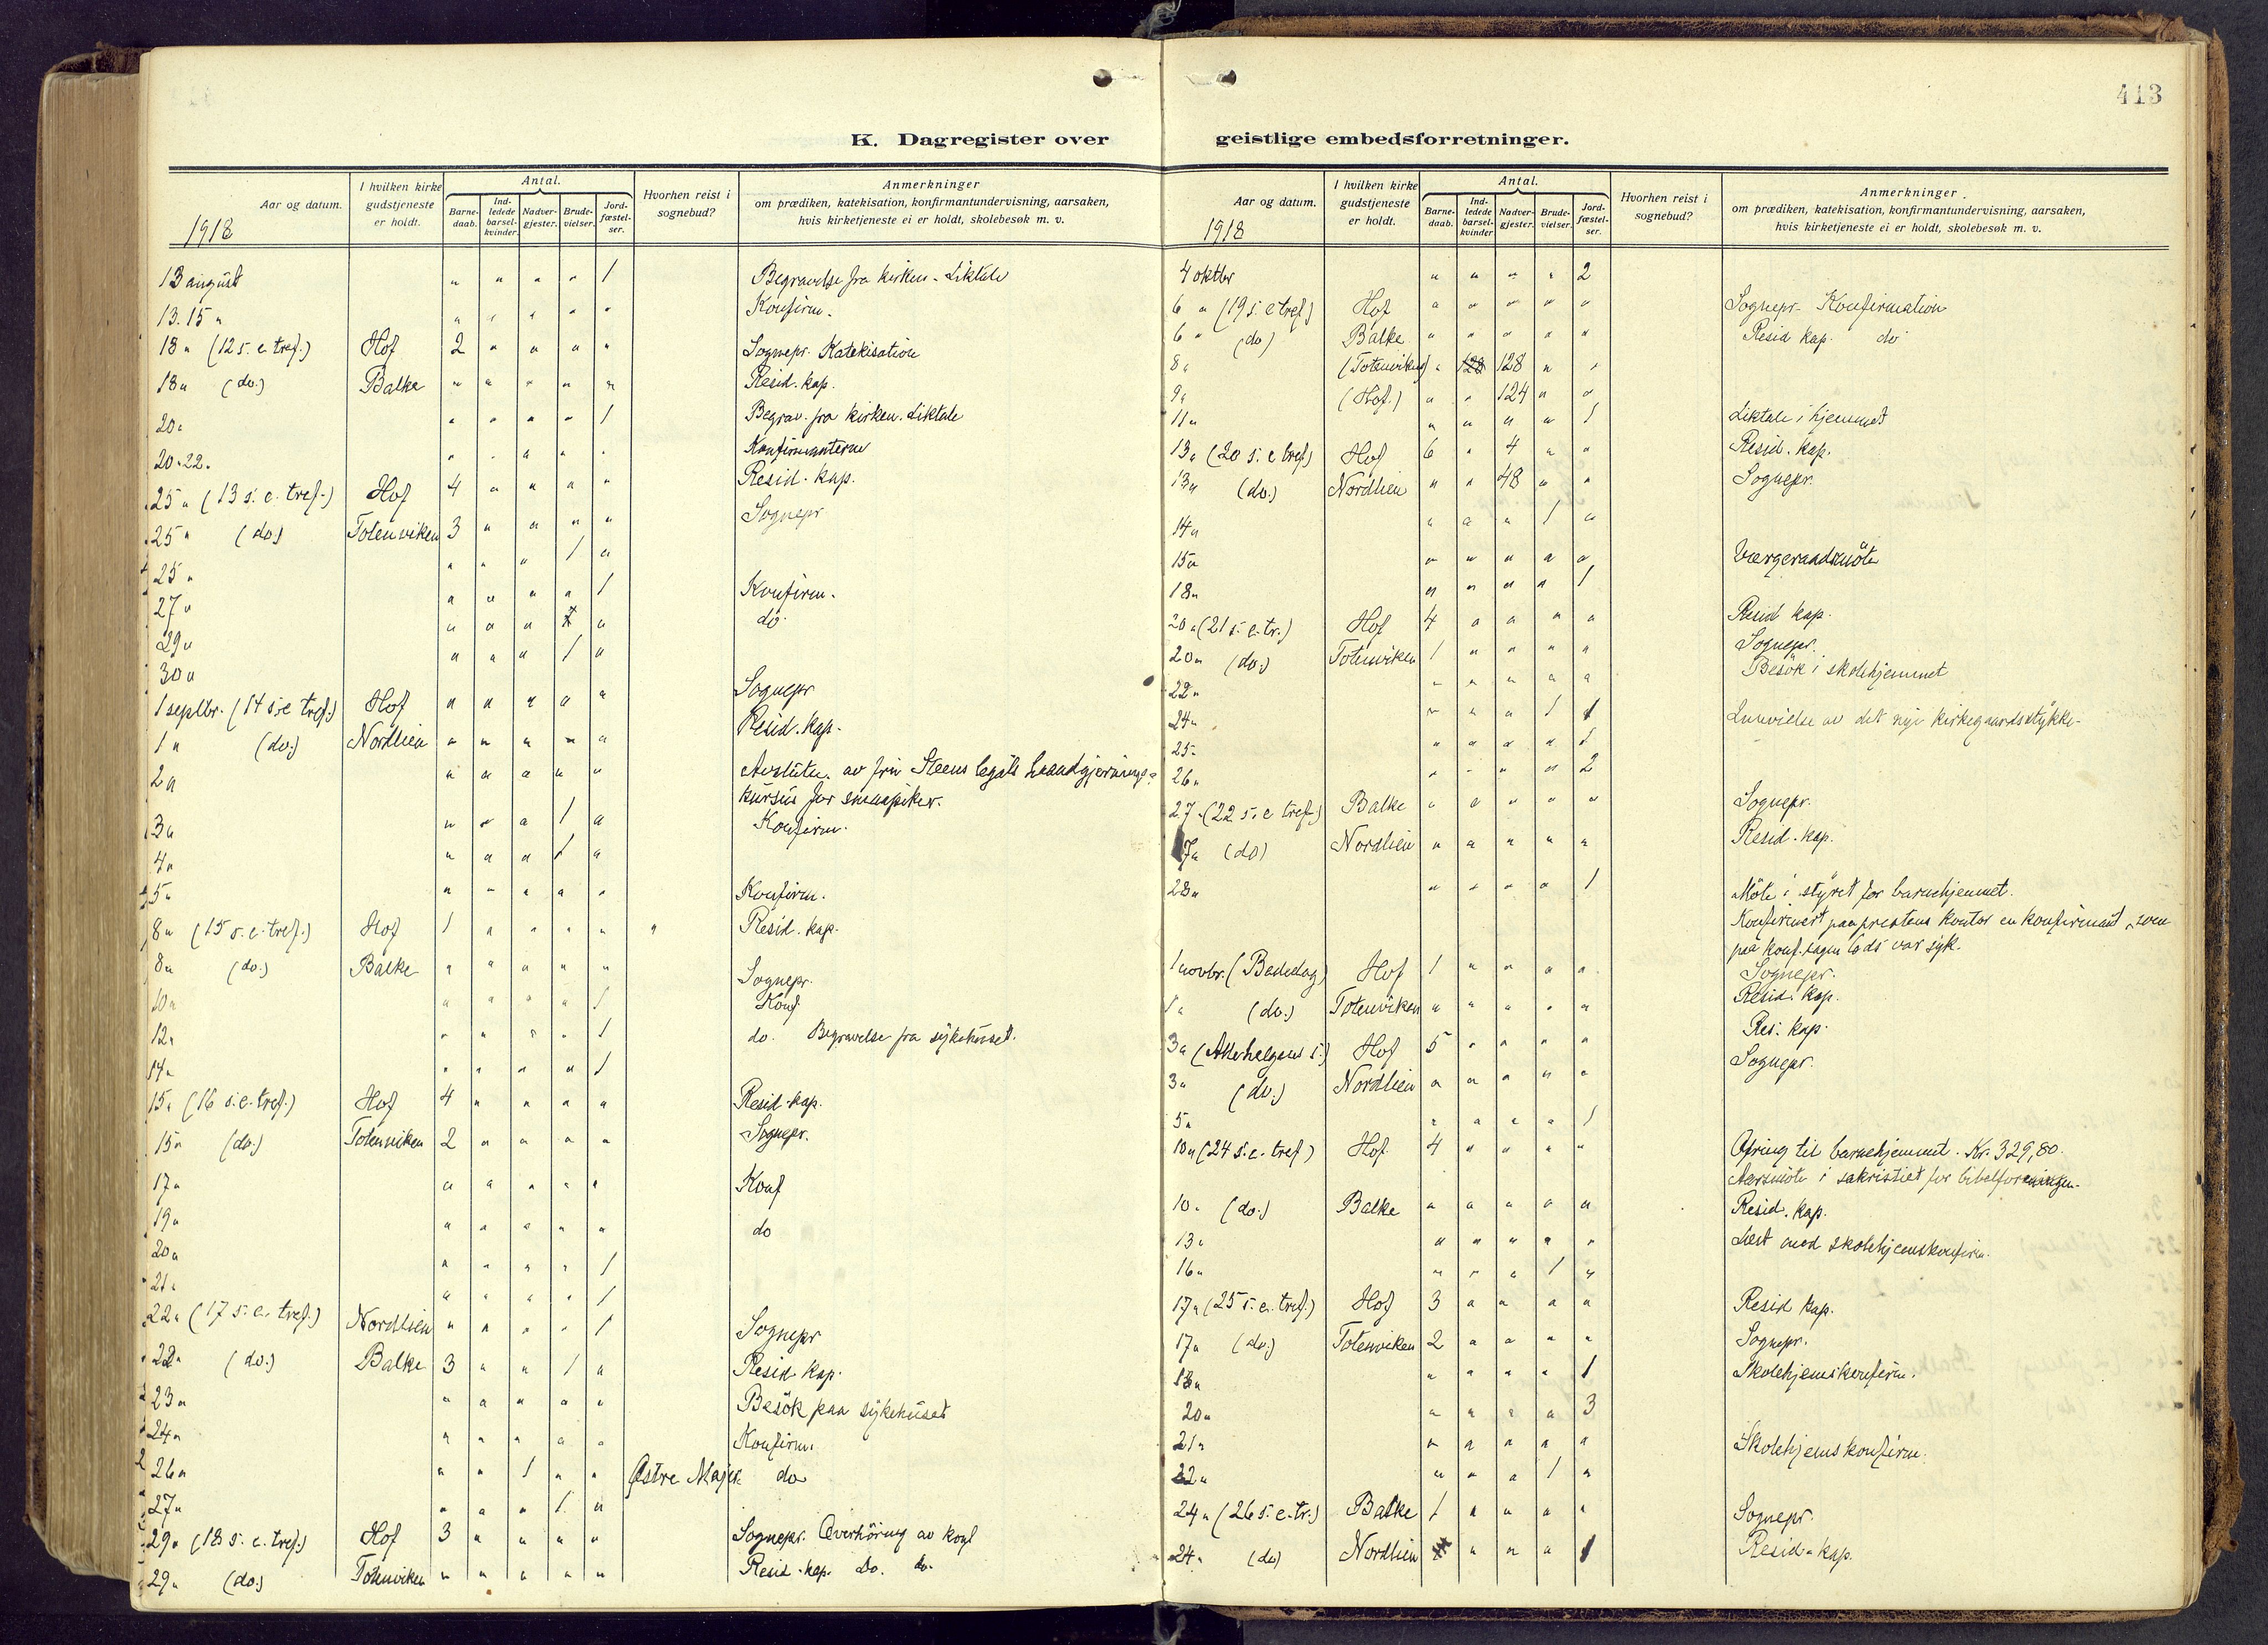 413
K. Dagregister over geistlige embedsforretninger.
Aar og datum.
I hvilken kirke gudstjeneste er holdt.
Antal.
Barne-daab.
Ind-ledede barsel-kvinder.
Nadver-gjester.
Brude-vielser.
Jord-fæstel-ser.
Hvorhen reist i sognebud?
Anmerkninger
om prædiken, katekisation, konfirmantundervisning, aarsaken,
hvis kirketjeneste ei er holdt, skolebesøk m. v.
1918
13 august " " " " 1 Begravelse fra kirken. Liktale
13. 15 " " " " " " Konfirm.
18 " (12 s. e. tref.) Hof 2 " " " " Sognepr. Katekisation
18 " (do.) Balke " " " " " Resid. kap.
20 " " " " " 1 Begrav. fra kirken. Liktale
20. 22. " " " " " Konfirmanterne
25 " (13 s. e. tref.) Hof 4 " " " " Resid. kap.
25 " (do.) Totenviken 3 " " " " Sognepr
25 " " " " 1 "
27 " " " " " 1 Konfirm.
29 " " " " " do.
30 " " " " 1 "
1 septbr. (14 s. e. tref.) Hof " " " " " Sognepr
1 " (do.) Nordlien " " " " " Resid. kap.
2 " " " " " " Avslutn. av fru Steens legats haandgjernings-
kursus for smaapiker.
3 " " " " 1 " Konfirm.
4 " " " " 1 "
5 " " " " " " Konfirm.
8 " (15 s. e. tref.) Hof 1 " " " " " Resid. kap.
8 " (do.) Balke " " " " " Sognepr.
10 " " " " " 1 Konf.
12 " " " " " 1 do. Begravelse fra sykehuset.
14 " " " " " 1
15 " (16 s. e. tref.) Hof 4 " " " " Resid. kap.
15 " (do.) Totenviken 2 " " " " Sognepr.
17 " " " " " " Konf
19 " " " " " " do
20 " " " " " 1
21 " " " " " 1
22 " (17 s. e. tref.) Nordlien " " " " 1 Sognepr
22 " (do.) Balke 3 " " 1 " Resid. kap.
23 " " " " " " Besök paa sykehuset
24 " " " " " " Konfirm.
26 " " " 1 " " Østre do
27 " " " " 1 "
29 " (18 s. e. tref.) Hof 3 " " " " Sognepr. Overhöring av konf
29 " (do.) Totenviken " " " " " Resid. kap. Do. do.
Aar og datum.
I hvilken kirke gudstjeneste er holdt.
Antal.
Barne-daab.
Ind-ledede barsel-kvinder
Nadver-gjester.
Brude-vielser.
Jord-fæstel-ser.
Hvorhen reist i sognebud?
Anmerkninger.
om prædiken, katekisation, konfirmantundervisning, aarsaken,
hvis kirketjeneste ei er holdt, skolebesøk m. v.
1918
4 oktbr " " " " 2
6 " (19 s. e tref) Hof " " " " " Sognepr. Konfirmation
6 " (do) Balke " " " " " Resid kap. do
8 " (Totenviken) " 128 128 " "
9 " (Hof.) " " 124 " "
11 " " " " " 1 Liktale i hjemmet
13 " (20 s. e tref.) Hof 6 " 4 " " Resid. kap.
13 " (do.) Nordlien " " 48 " " Sognepr.
14 " " " " 1 "
15 " " " " " " Værgeraadsmöte
18 " " " " " 1
20 " (21 s. e. tr.) Hof 4 " " " " Resid kap.
20 " (do.) Totenviken 1 " " " " Sognepr.
22 " " " " " " Besök i skolehjemmet
24 " " " " 1 1 Indvielse av det nye kirkegaardsstykke.
25 " " " " " 1
26 " " " " " 2
27 " (22 s. e tref.) Balke " " " " " Sognepr.
7 " (do) Nordlien " " " " " Resid. kap.
28 " " " " " 1 Möte i styret for barnehjemmet.
Konfirmert paa prestens kontor en konfirmant, som
paa konf.dagen var syk.
1 novbr. (Bededag) Hof 1 " " " " Sognepr.
1 " (do.) Totenviken " " " " " Resid. kap.
3 " (Allehelgens s.) Hof 5 " " " " Res. kap.
3 " (do.) Nordlien " " " " " Sognepr.
5 " " " " " 1
10 " (24 s. e. tref) Hof 4 " " " " Ofring til barnehjemmet. Kr. 329,80.
Aarsmöte i sakristiet for bibelforeningen.
10 " (do.) Balke " " " " " Resid. kap.
13 " " " " " " Læst med skolehjemskonfirm.
16 " " " " 1 "
17 " (25 s. e. tref.) Hof 3 " " " " Resid kap.
17 " (do.) Totenviken 2 " " " " Sognepr.
18 " " " " " 1 Skolehjemskonfirm.
20 " " " " " 3
21 " " " " " " Skolehjemskonfirm.
22 " " " " 1 "
24 " (26 s. e. tr.) Balke 1 " " " " Sognepr.
24 " (do) Nordlien " " " 1 Resid. kap.